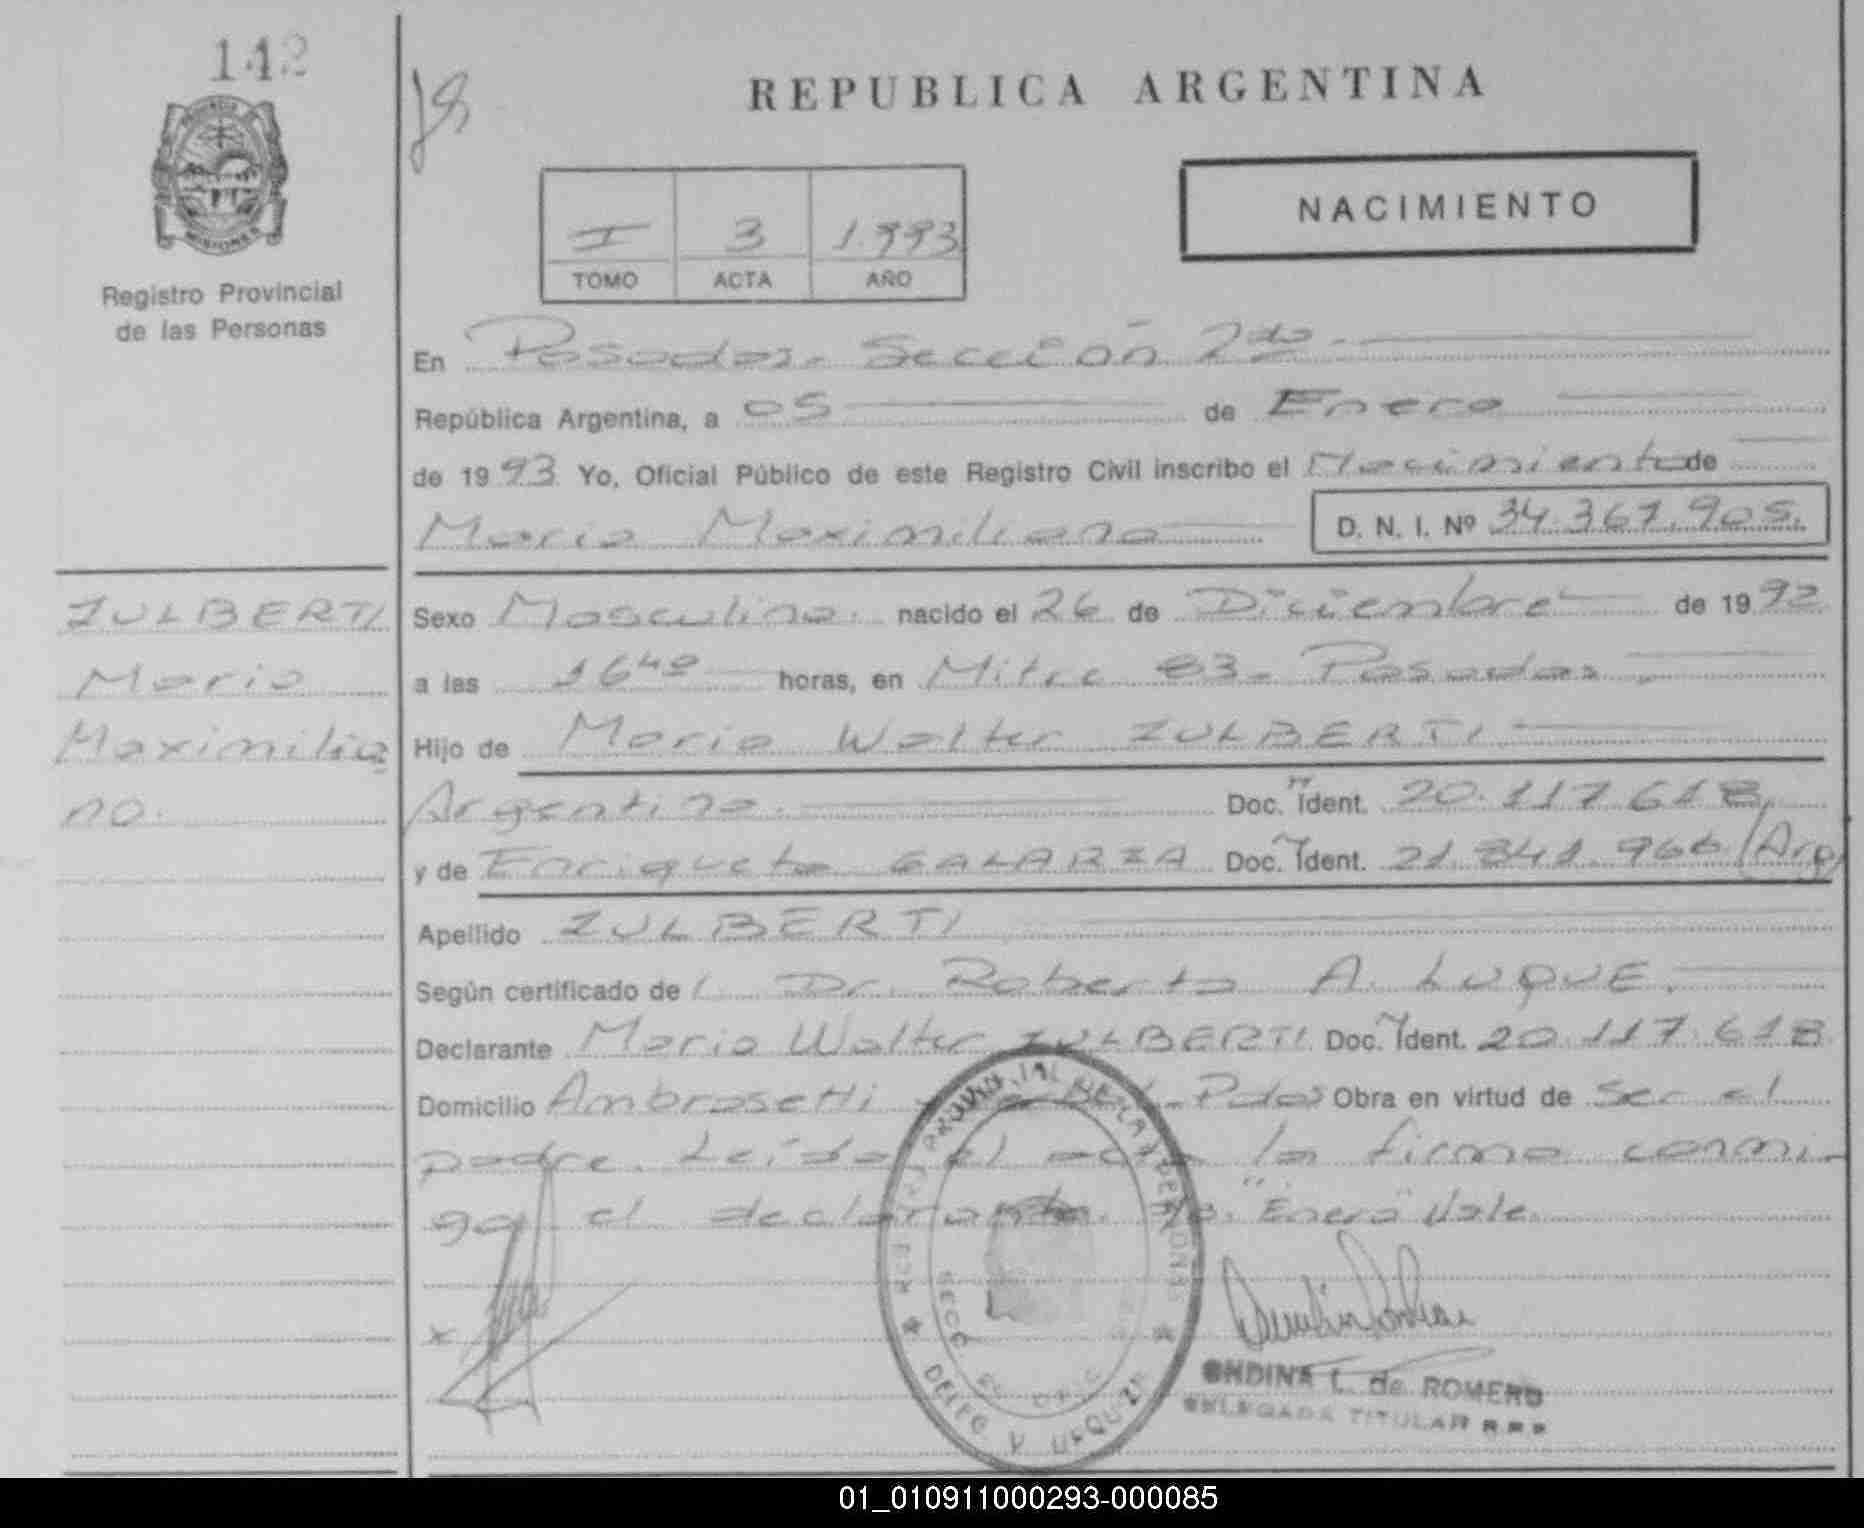 142
REPUBLICA ARGENTINA
MISIONES
Registro Provincial
de las Personas
I 3 1.993
TOMO ACTA AÑO
NACIMIENTO
En Posadas - Sección 2da -
República Argentina, a 05 de Enero
de 1993 Yo, Oficial Público de este Registro Civil inscribo el Nacimiento de
Mario Maximiliano D. N. I. Nº 34.367.905.
ZULBERTI
Mario
Maximilia
no.
Sexo Masculino. nacido el 26 de Diciembre de 1992
a las 16 40 horas, en Mitre 83 - Posadas
Hijo de Mario Walter ZULBERTI
Argentino. Doc. Ident. 20.117.618
y de Enriqueta GALARZA Doc. Ident. 21.341.966 (Arg)
Apellido ZULBERTI
Según certificado del Dr. Roberto A. LUQUE.
Declarante Mario Walter ZULBERTI Doc. Ident. 20.117.618
Domicilio Ambrosetti Pdas Obra en virtud de ser el
padre. Leída el acta la firma conmi-
go el declarante. "Enero" Vale
x
ONDINA L. de ROMERO
DELEGADA TITULAR R.P.P.
01_010911000293-000085